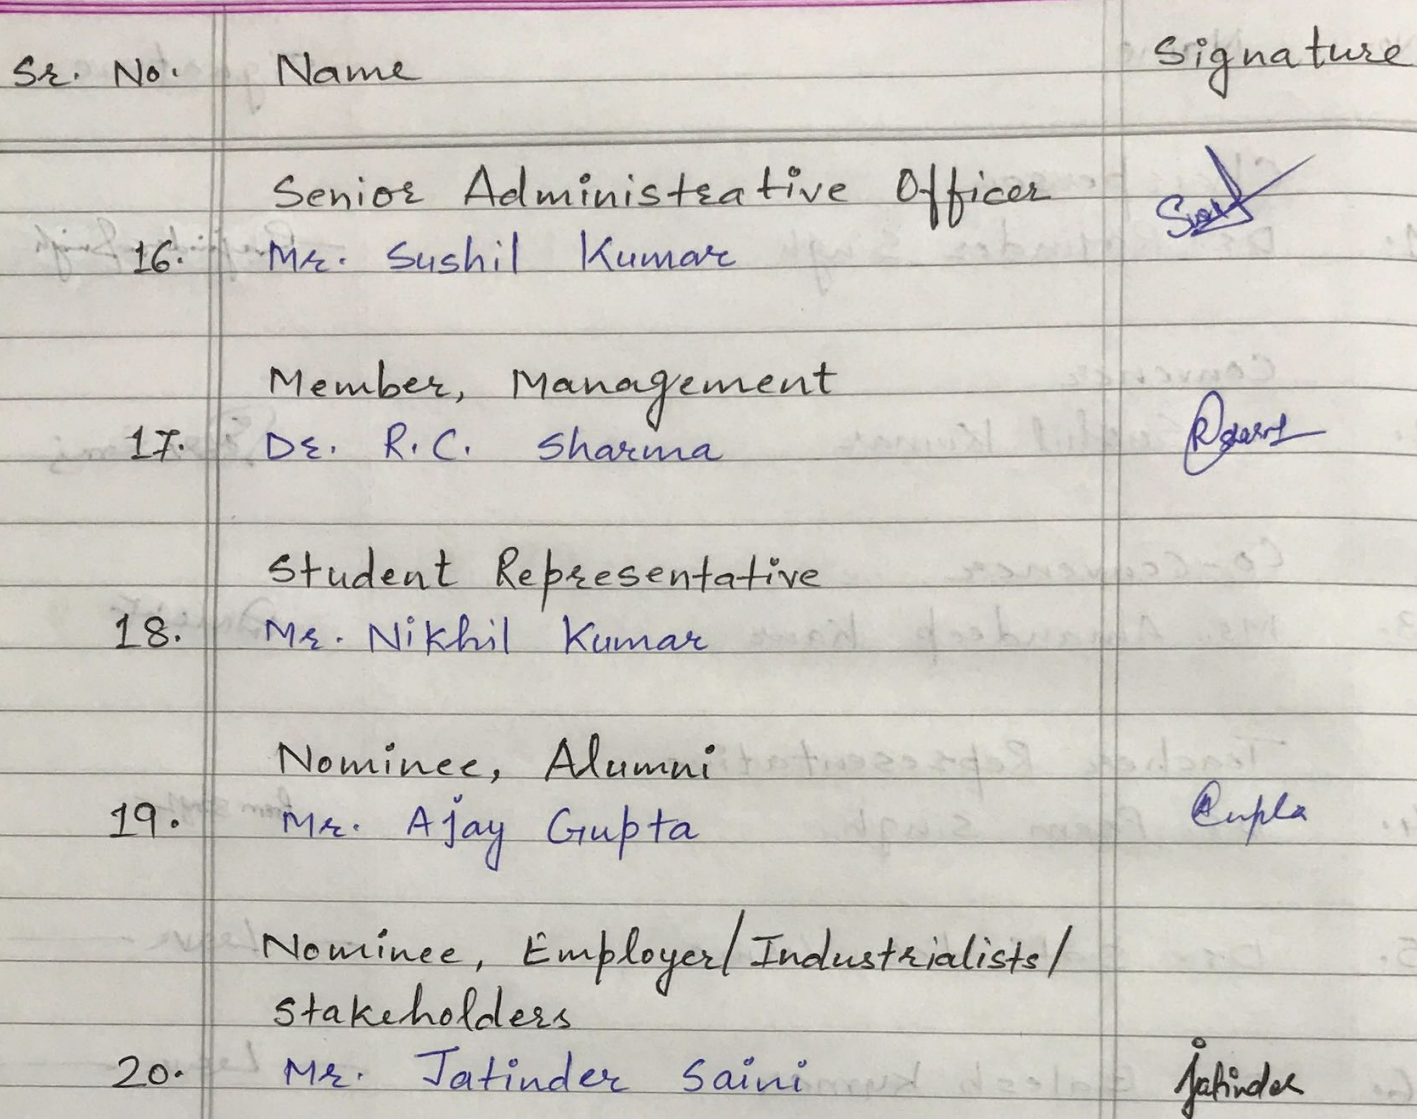 Sr. No. Name Signature
Senior Administrative Officer
16. Mr. Sushil Kumar
Member, Management
17. Dr. R.C. Sharma
Student Representative
18. Mr. Nikhil Kumar
Nominee, Alumni
19. Mr. Ajay Gupta Gupta
Nominee, Employer/Industrialists/
Stakeholders
20. Mr. Jatinder Saini Jatinder